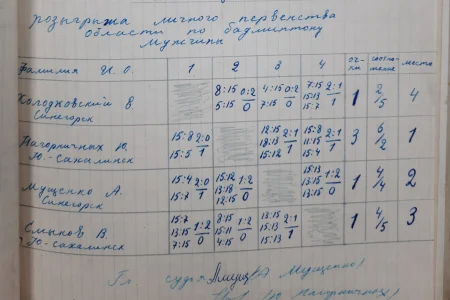 розыгрыжа личного первенства
области по бадминтону
Мужчины
Фамилия И. О. 1 2 3 4 оч-ки соотно-шение места
Холодковский В. Синегорск 8:15 5:15 0:2 0 4:15 7:15 0:2 0 7:15 15:13 15:7 2:1 1 1 2/5 4
Нагорничных Ю. Ю-Сахалинск 15:8 15:5 2:0 1 12:15 18:13 15:12 2:1 1 15:8 11:15 15:4 2:1 1 3 6/2 1
Мущенко А. Синегорск 15:4 15:7 2:0 1 15:12 13:18 12:15 1:2 0 15:13 13:15 15:13 1:2 0 1 4/4 2
В. Ю-Сахалинск 15:7 13:15 7:15 1:2 0 8:15 15:11 4:15 1:2 0 13:15 15:13 15:13 2:1 1 1 4/5 3
Гл судья (А Мущенко)